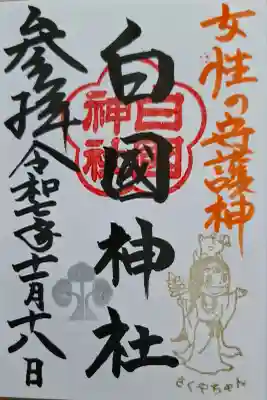 女性の守護神
白國神社
白國
神社
参拝 令和七年十一月十八日
さくやちゃん